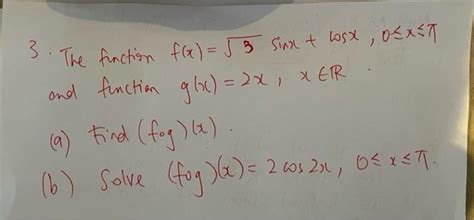 3. The function f(x) = √3 sinx + cosx, 0≤x≤π
and function g(x) = 2x, x∈ℝ.
(a) Find (fog)(x).
(b) Solve (fog)(x) = 2 cos 2x, 0≤x≤π.